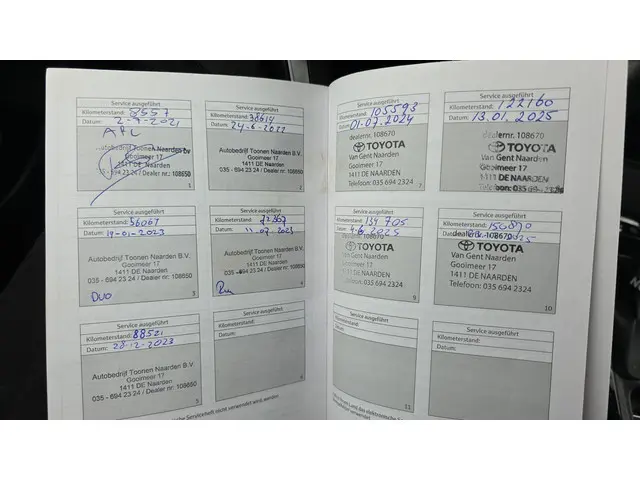 Service ausgeführt
Kilometerstand: 8557
Datum: 2-9-2021
APL
Autobedrijf Toonen Naarden BV
Gooimeer 17
1411 DE Naarden
035 - 694 23 24 / Dealer nr.: 108650
1
Service ausgeführt
Kilometerstand: 38614
Datum: 24-6-2022
Autobedrijf Toonen Naarden B.V.
Gooimeer 17
1411 DE Naarden
035 - 694 23 24 / Dealer nr.: 108650
2
Service ausgeführt
Kilometerstand: 56067
Datum: 19-01-2023
Autobedrijf Toonen Naarden B.V.
Gooimeer 17
1411 DE Naarden
035 - 694 23 24 / Dealer nr.: 108650
DUO
3
Service ausgeführt
Kilometerstand: 72867
Datum: 11-07-2023
Autobedrijf Toonen Naarden B.V.
Gooimeer 17
1411 DE Naarden
035 - 694 23 24 / Dealer nr.: 108650
Service ausgeführt
Kilometerstand: 88521
Datum: 20-12-2023
Autobedrijf Toonen Naarden B.V.
Gooimeer 17
1411 DE Naarden
035 - 694 23 24 / Dealer nr.: 108650
5
Service ausgeführt
Kilometerstand:
Datum:
Service ausgeführt
Kilometerstand: 105593
Datum: 01-07-2024
dealernr. 108670
TOYOTA
Van Gent Naarden
Gooimeer 17
1411 DE NAARDEN
Telefoon: 035 694 2324
7
Service ausgeführt
Kilometerstand: 122160
Datum: 13.01.2025
dealernr. 108670
TOYOTA
Van Gent Naarden
Gooimeer 17
1411 DE NAARDEN
Telefoon: 035 69
Service ausgeführt
Kilometerstand: 134705
Datum: 4-6-2025
TOYOTA
Van Gent Naarden
Gooimeer 17
1411 DE NAARDEN
Telefoon: 035 694 2324
9
Service ausgeführt
Kilometerstand: 150890
Datum:
dealernr. 108670
TOYOTA
Van Gent Naarden
Gooimeer 17
1411 DE NAARDEN
Telefoon: 035 694 2324
10
Service ausgeführt
Kilometerstand:
Datum:
Service ausgeführt
Kilometerstand:
Datum:
Serviceheft nicht verwendet wird, werden